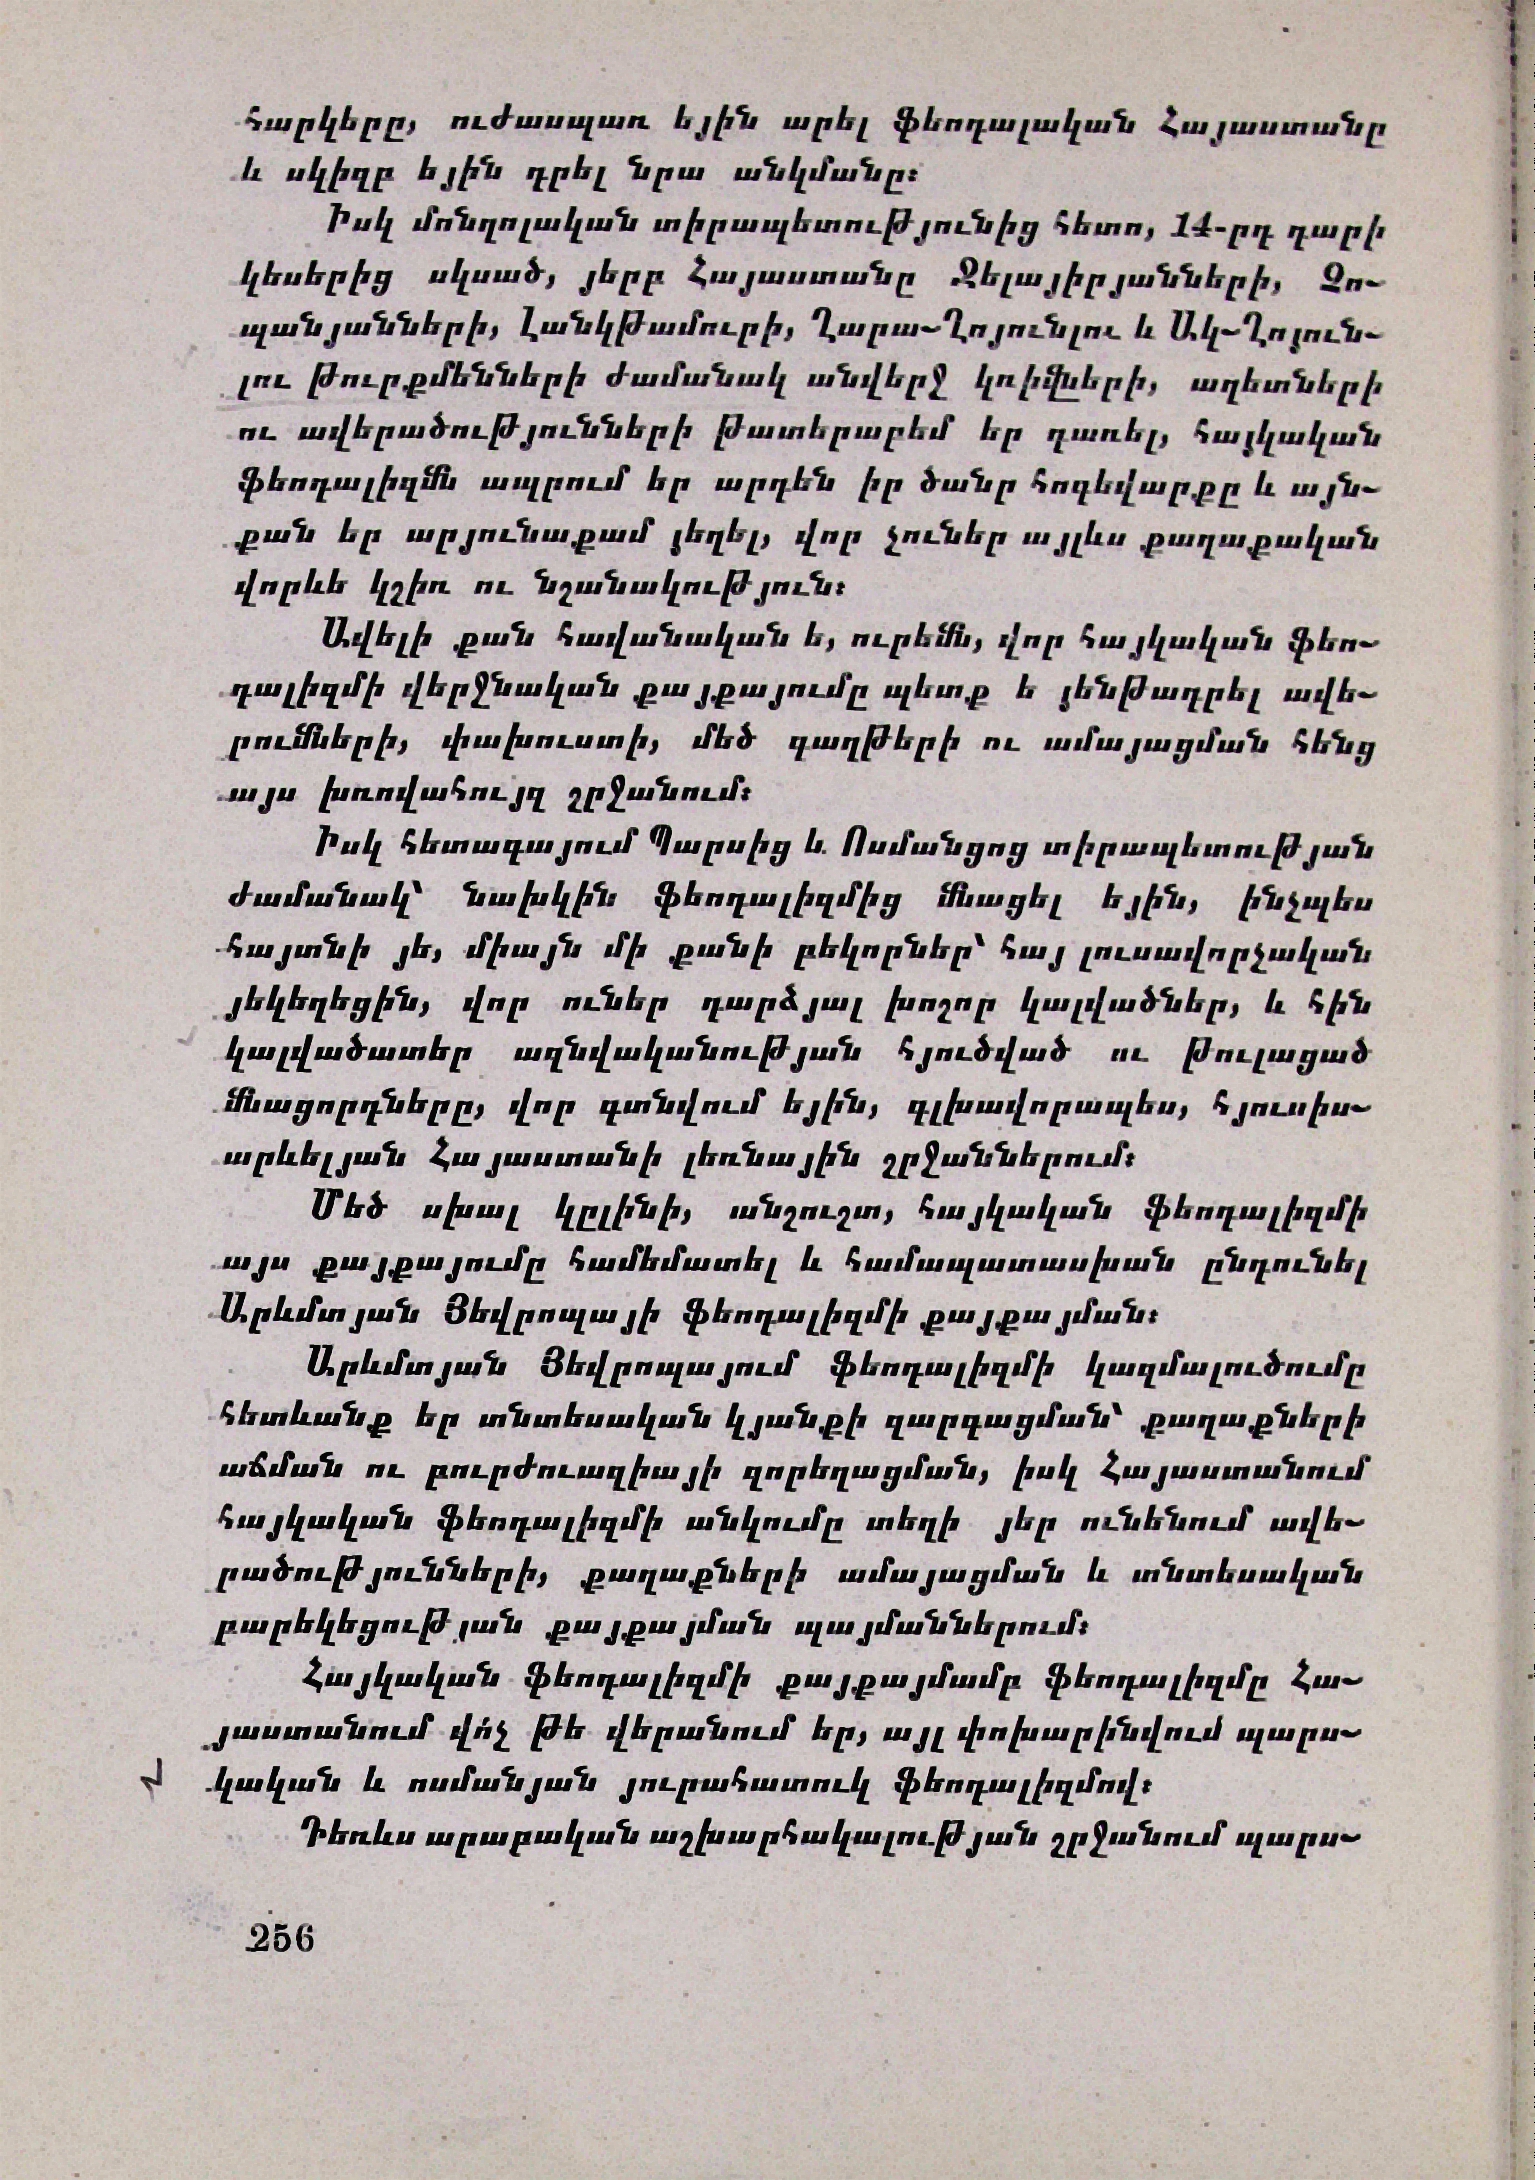 հարկերը, ուժասպառ եյին արել ֆեոդալական Հայաստանը
և սկիզբ եյին դրել նրա անկմանը։
Իսկ մոնղոլական տիրապետությունից հետո, 14-րդ դարի
կեսերից սկսած, յերբ Հայաստանը Ջելայիրյանների, Չո-
պանյանների, Լանկթամուրի, Ղարա-Ղոյունլու և Ակ-Ղոյուն-
լու թուրքմենների ժամանակ անվերջ կռիվների, աղետների
ու ավերածությունների թատերաբեմ եր դառել, հայկական
ֆեոդալիզմն ապրում եր արդեն իր ծանր հոգեվարքը և այն-
քան եր արյունաքամ յեղել, վոր չուներ այլևս քաղաքական
վորևե կշիռ ու նշանակություն։
Ավելի քան հավանական ե, ուրեմն, վոր հայկական ֆեո-
դալիզմի վերջնական քայքայումը պետք ե յենթադրել ավե-
րումների, փախուստի, մեծ գաղթերի ու ամայացման հենց
այս խռովահույզ շրջանում։
Իսկ հետագայում Պարսից և Ոսմանցոց տիրապետության
ժամանակ՝ նախկին ֆեոդալիզմից մնացել եյին, ինչպես
հայտնի յե, միայն մի քանի բեկորներ՝ հայ լուսավորչական
յեկեղեցին, վոր ուներ դարձյալ խոշոր կալվածներ, և հին
կալվածատեր ազնվականության հյուծված ու թուլացած
մնացորդները, վոր գտնվում եյին, գլխավորապես, հյուսիս-
արևելյան Հայաստանի լեռնային շրջաններում։
Մեծ սխալ կըլինի, անշուշտ, հայկական ֆեոդալիզմի
այս քայքայումը համեմատել և համապատասխան ընդունել
Արևմտյան Յեվրոպայի ֆեոդալիզմի քայքայման։
Արևմտյան Յեվրոպայում ֆեոդալիզմի կազմալուծումը
հետևանք եր տնտեսական կյանքի զարգացման՝ քաղաքների
աճման ու բուրժուազիայի զորեղացման, իսկ Հայաստանում
հայկական ֆեոդալիզմի անկումը տեղի յեր ունենում ավե-
րածությունների, քաղաքների ամայացման և տնտեսական
բարեկեցության քայքայման պայմաններում։
Հայկական ֆեոդալիզմի քայքայմամբ ֆեոդալիզմը Հա-
յաստանում վո՛չ թե վերանում եր, այլ փոխարինվում պարս-
կական և ոսմանյան յուրահատուկ ֆեոդալիզմով։
Դեռևս արաբական աշխարհակալության շրջանում պարս-
256